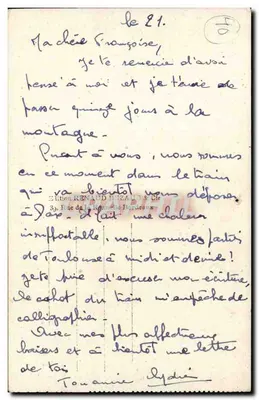 le 21.
Ma chère Françoise,
Je te remercie d'avoir
pensé à moi et je t'envie de
passer quinze jours à la
montagne.
Quant à nous, nous sommes
en ce moment dans le train
qui va bientôt nous déposer
à Il fait une chaleur
insupportable, nous sommes partis
de Toulouse à midi et demie!
je te prie d'excuser mon écriture,
le cahot du train m'empêche de
calligraphier.
Avec mes plus affectueux
baisers et à bientôt une lettre
de toi
Ton amie Lydie